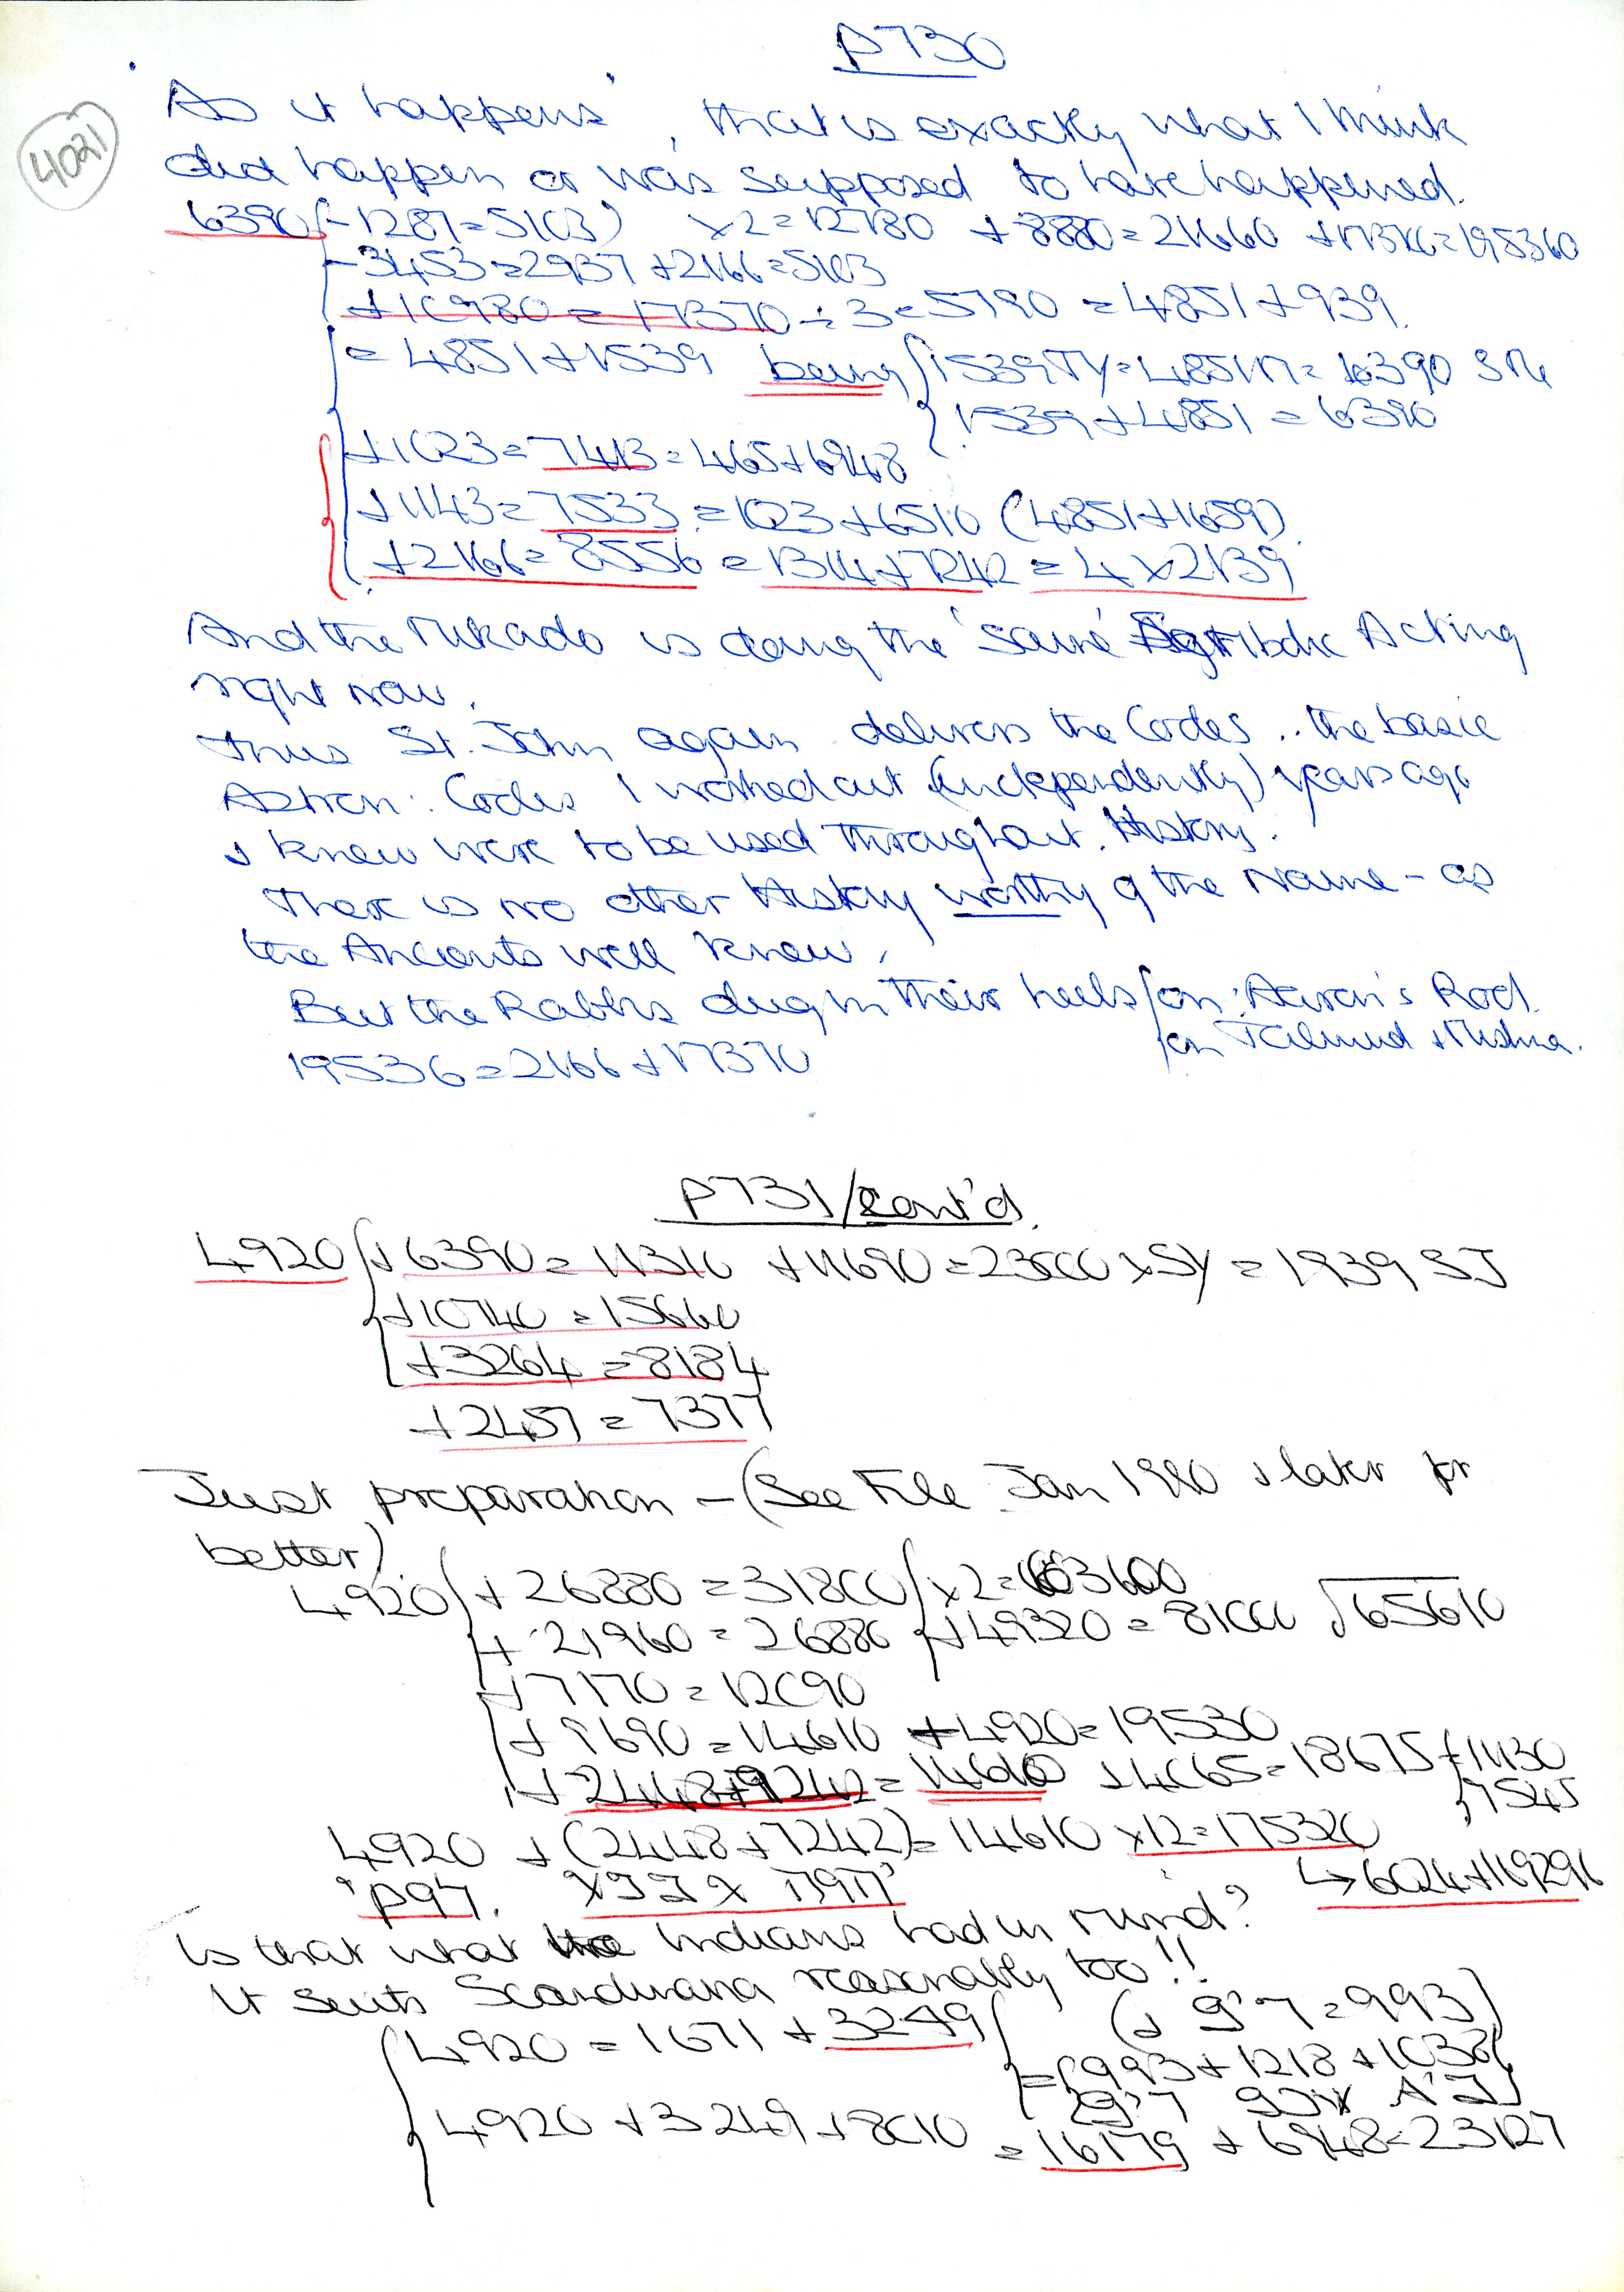 P730
4021
As it happens, that is exactly what I think
did happen or was supposed to have happened.
6390 (-1287=5103) x2=12780 +8880=21660 +17376=195360
-3453=2937 +2166=5103
+10980 = 17370 ÷ 3=5790 = 4851+939.
= 4851+1539 being 1539TY=4851M=6390 SM
1539+4851=6390
+1023=7413=465+6948
+1143=7533=1023+6510 (4851+1659)
+2166=8556=1314+7242=4x2139
And the Mikado is doing the 'same' Acting
right now.
Thus St. John again delivers the Codes .. the basic
Astron: Codes I worked out (independently) years ago
& knew were to be used throughout History.
There is no other History worthy of the Name - as
the Ancients well knew.
But the Rabbis dug in their heels on Aaron's Rod
on Talmud & Mishna.
19536=2166+17370
P731/cont'd.
4920 +6390=11310 +11690=23000 xSY=1939 SJ
+10740=15660
+3264=8184
+2457=7377
Just preparation - (See File Jan 1980 & later for
better)
4920 +26880=31800 x2=63600
+21960=26880 +49320=81000 √65610
+7170=12090
+9690=14610 +4920=19530
+2448+7242=14610 +4065=18675 +11130
7545
4920 +(2448+7242)=14610 x12=175320
→6024+169296
Is that what the Indians had in mind?
It suits Scandinavia reasonably too!!
4920=1671+3249
=993+1218+1038
4920+3249+8010=16179+6948=23127